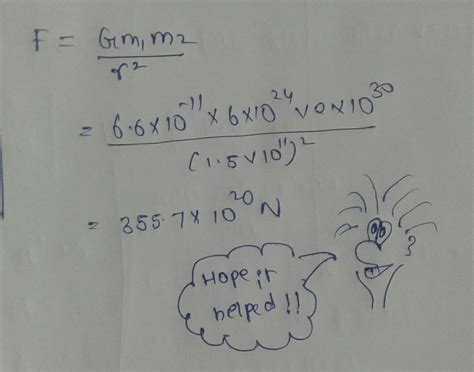 F = Gm₁m₂ / r²
= 6.6×10⁻¹¹ × 6×10²⁴ × 0×10³⁰ / (1.5×10¹¹)²
= 355.7×10²⁰ N
Hope it
helped!!